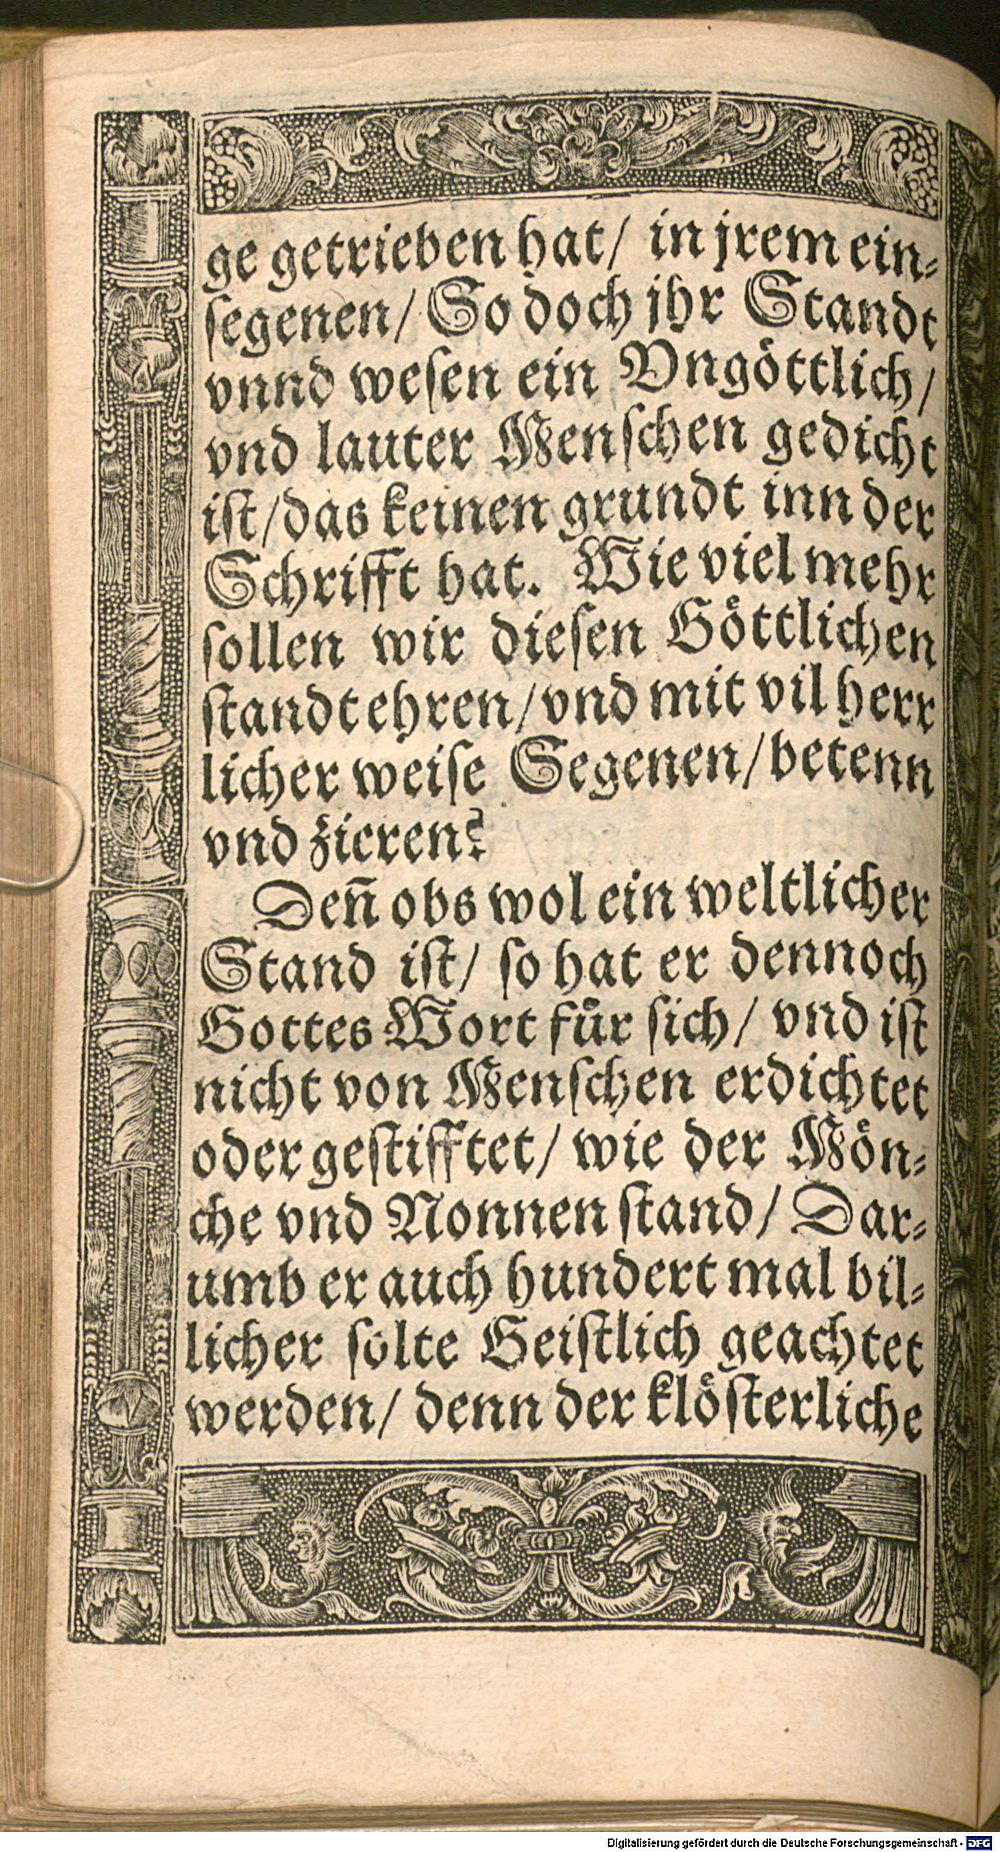 ge getrieben hat/ in jrem ein-
segenen/ So doch jhr Standt
vnnd wesen ein Vngöttlich/
vnd lauter Menschen gedicht
ist/das keinen grundt inn der
Schrifft hat. Wie viel mehr
sollen wir diesen Göttlichen
standt ehren/vnd mit vil herr
licher weise Segenen/betenn
vnd zieren?
Deñ obs wol ein weltlicher
Stand ist/ so hat er dennoch
Gottes Wort für sich/ vnd ist
nicht von Menschen erdichtet
oder gestifftet/ wie der Mön-
che vnd Nonnen stand/ Dar-
umb er auch hundert mal bil-
licher solte Geistlich geachtet
werden/ denn der klösterliche
Digitalisierung gefördert durch die Deutsche Forschungsgemeinschaft - DFG